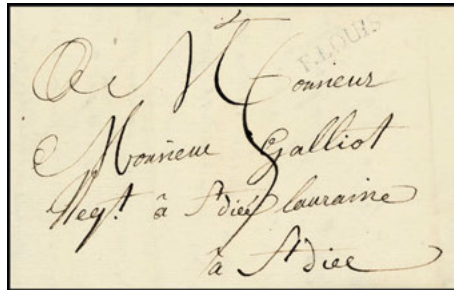 F. LOUIS
A Monsieur
Monsieur Galliot
Negt. à St diéé lauraine
à St diee